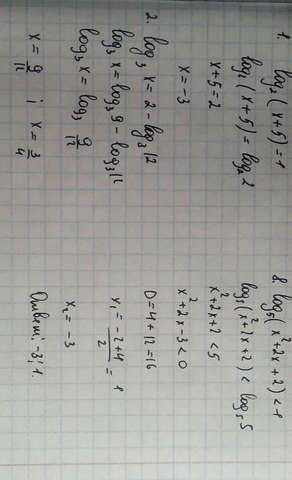 1. log₂(x+5)=1
log₂(x+5)=log₂2
x+5=2
x=-3
2. log₃ x = 2 - log₃ 12
log₃ x = log₃ 9 - log₃ 12
log₃ x = log₃ 9/12
x = 9/12 ; x = 3/4
8. log₅(x²+2x+2)<1
log₅(x²+2x+2) < log₅5
x²+2x+2<5
x²+2x-3<0
D=4+12=16
x₁= (-2+4)/2 = 1
x₂ = -3
Ответ: -3; 1.